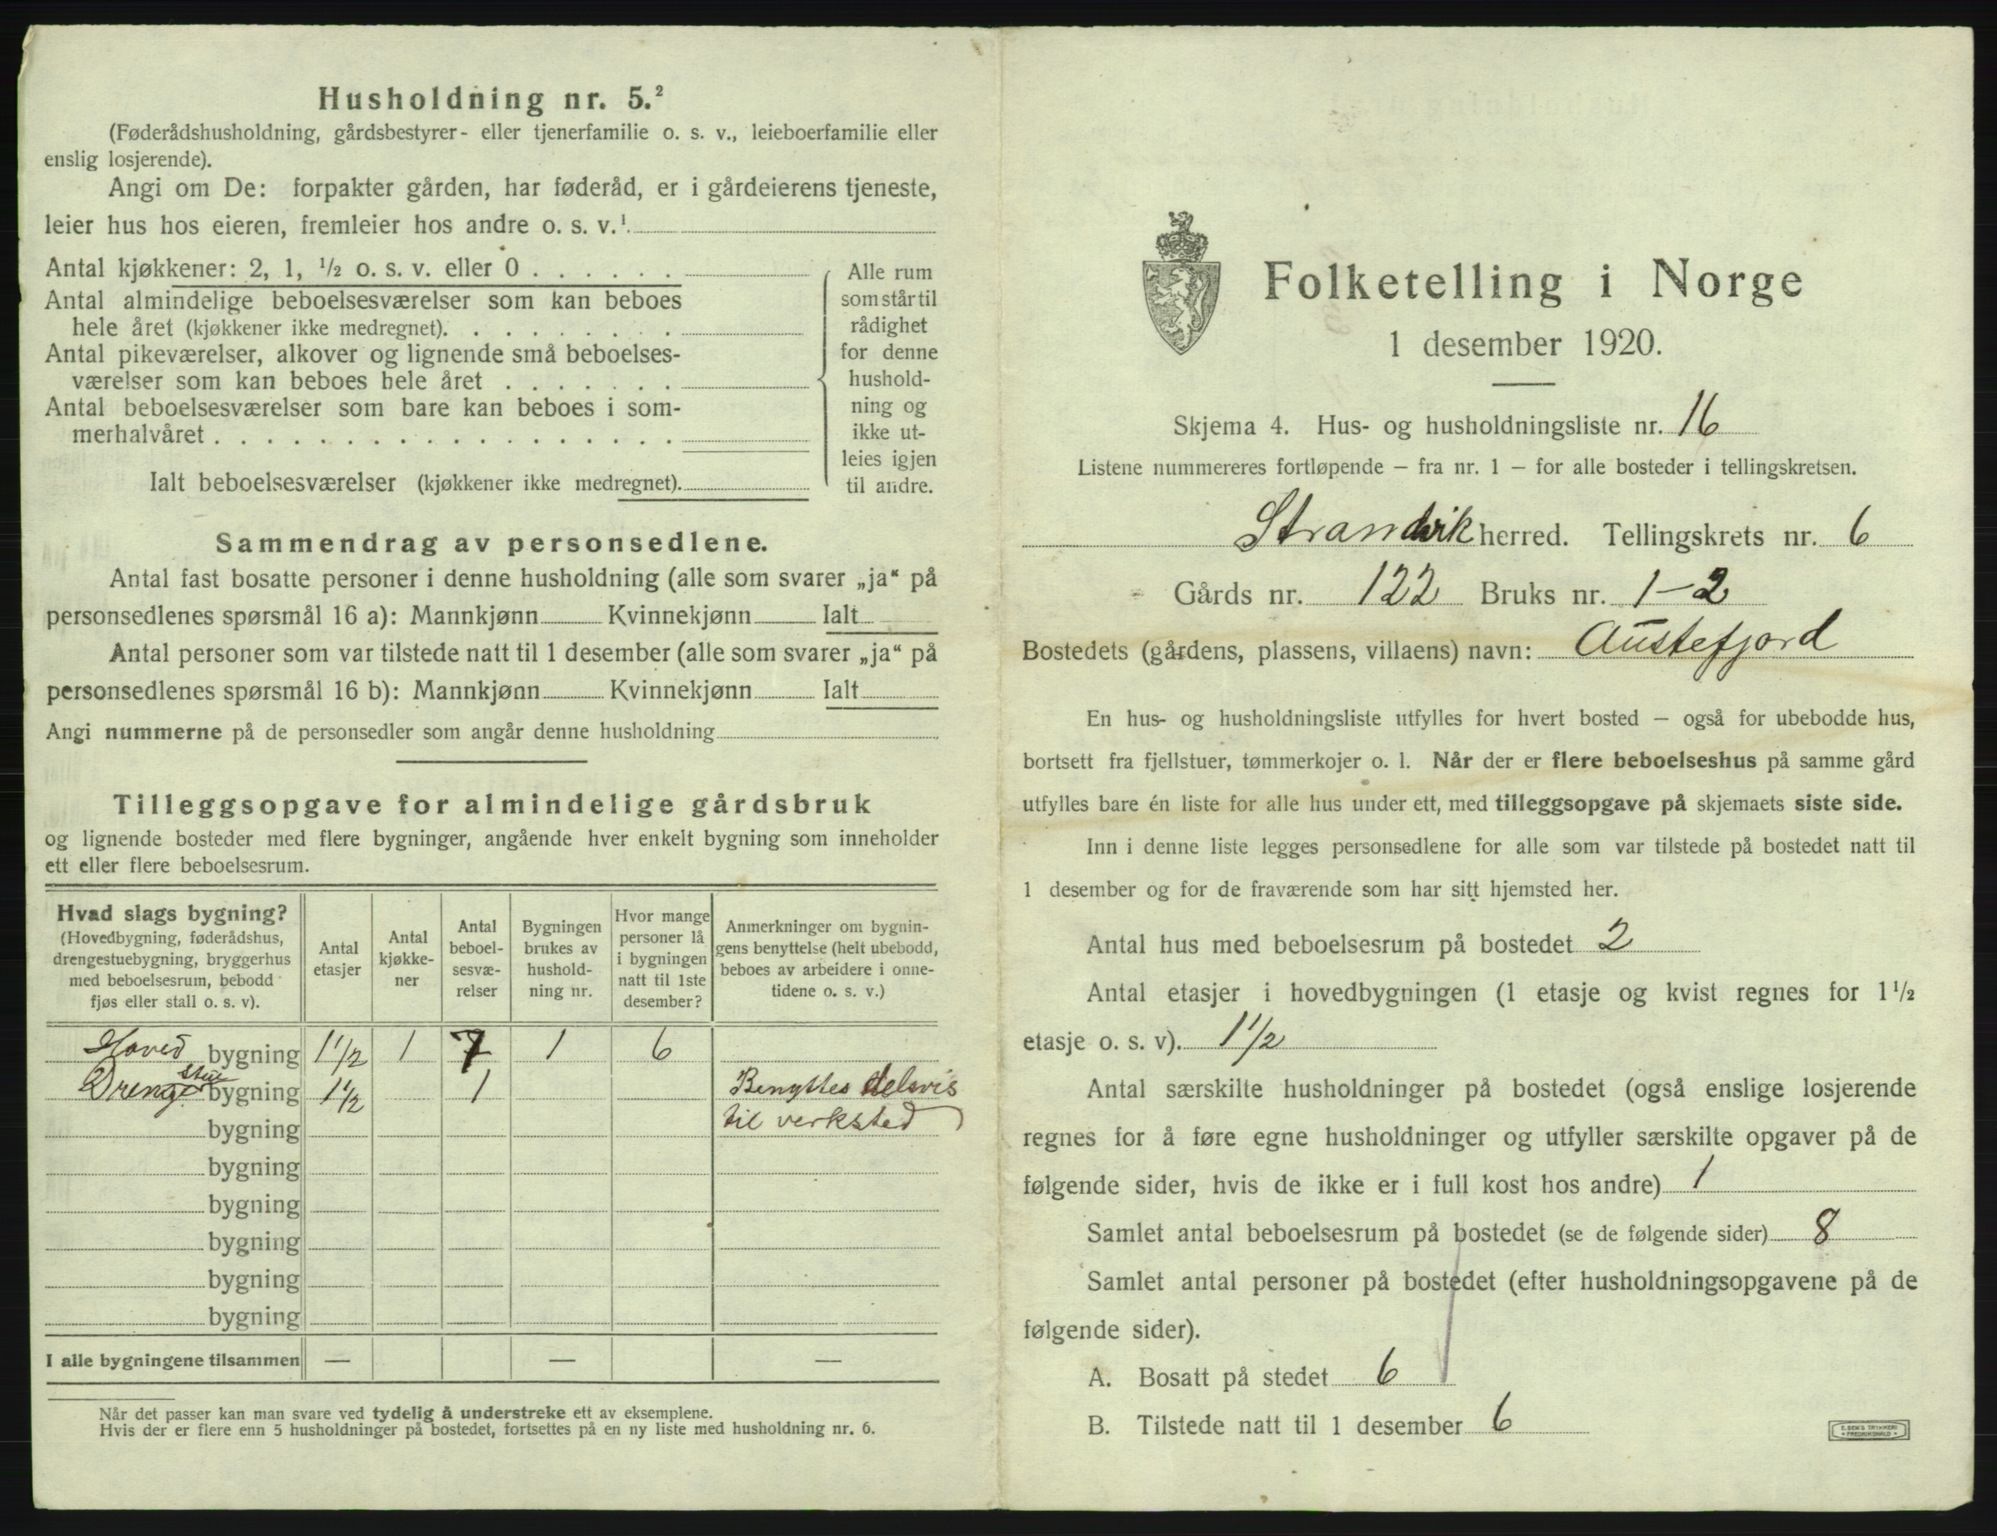 Husholdning nr. 5.²
(Føderådshusholdning, gårdsbestyrer- eller tjenerfamilie o. s. v., leieboerfamilie eller
enslig losjerende).
Angi om De: forpakter gården, har føderåd, er i gårdeierens tjeneste,
leier hus hos eieren, fremleier hos andre o. s. v.¹
Antal kjøkkener: 2, 1, ½ o. s. v. eller 0
Antal almindelige beboelsesværelser som kan beboes
hele året (kjøkkener ikke medregnet).
Antal pikeværelser, alkover og lignende små beboelses-
værelser som kan beboes hele året
Antal beboelsesværelser som bare kan beboes i som-
merhalvåret
Ialt beboelsesværelser (kjøkkener ikke medregnet).
Alle rum
som står til
rådighet
for denne
hushold-
ning og
ikke ut-
leies igjen
til andre.
Sammendrag av personsedlene.
Antal fast bosatte personer i denne husholdning (alle som svarer „ja“ på
personsedlenes spørsmål 16 a): Mannkjønn Kvinnekjønn Ialt
Antal personer som var tilstede natt til 1 desember (alle som svarer „ja“ på
personsedlenes spørsmål 16 b): Mannkjønn Kvinnekjønn Ialt
Angi nummerne på de personsedler som angår denne husholdning
Tilleggsopgave for almindelige gårdsbruk
og lignende bosteder med flere bygninger, angående hver enkelt bygning som inneholder
ett eller flere beboelsesrum.
Hvad slags bygning?
(Hovedbygning, føderådshus,
drengestuebygning, bryggerhus
med beboelsesrum, bebodd
fjøs eller stall o. s. v).
Antal
etasjer
Antal
kjøkke-
ner
Antal
beboel-
sesvæ-
relser
Bygningen
brukes av
hushold-
ning nr.
Hvor mange
personer lå
i bygningen
natt til 1ste
desember?
Anmerkninger om bygnin-
gens benyttelse (helt ubebodd,
beboes av arbeidere i onne-
tidene o. s. v.)
Hoved bygning 1½ 1 7 1 6
Drengestue bygning 1½ 1 Benyttes delsvis
bygning til verksted
bygning
bygning
bygning
bygning
bygning
I alle bygningene tilsammen — — —
Når det passer kan man svare ved tydelig å understreke ett av eksemplene.
Hvis der er flere enn 5 husholdninger på bostedet, fortsettes på en ny liste med husholdning nr. 6.
Folketelling i Norge
1 desember 1920.
Skjema 4. Hus- og husholdningsliste nr. 16
Listene nummereres fortløpende – fra nr. 1 – for alle bosteder i tellingskretsen.
Strandvik herred. Tellingskrets nr. 6
Gårds nr. 122 Bruks nr. 1-2
Bostedets (gårdens, plassens, villaens) navn: Austefjord
En hus- og husholdningsliste utfylles for hvert bosted – også for ubebodde hus,
bortsett fra fjellstuer, tømmerkojer o. l. Når der er flere beboelseshus på samme gård
utfylles bare én liste for alle hus under ett, med tilleggsopgave på skjemaets siste side.
Inn i denne liste legges personsedlene for alle som var tilstede på bostedet natt til
1 desember og for de fraværende som har sitt hjemsted her.
Antal hus med beboelsesrum på bostedet 2
Antal etasjer i hovedbygningen (1 etasje og kvist regnes for 1½
etasje o. s. v). 1½
Antal særskilte husholdninger på bostedet (også enslige losjerende
regnes for å føre egne husholdninger og utfyller særskilte opgaver på de
følgende sider, hvis de ikke er i full kost hos andre) 1
Samlet antal beboelsesrum på bostedet (se de følgende sider) 8
Samlet antal personer på bostedet (efter husholdningsopgavene på de
følgende sider).
A. Bosatt på stedet 6
B. Tilstede natt til 1 desember 6